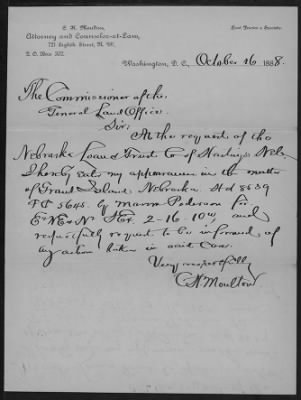 C. H. Moulton,
Attorney and Counselor-at-Law,
721 Eighth Street, N. W.,
P. O. Box 322.
Land Practice a Specialty.
Washington, D. C., October 16 1888.
The Commissioner of the
General Land Office.
Sir:
At the request of the
Nebraska Loan & Trust Co of Hastings Neb.
I hereby enter my appearance in the matter
of Grand Island, Nebraska Hd 8639
F.C. 5645. by Pederson for
2-16-10W and
respectfully request to be informed of
any action taken in said case.
Very respectfully
C H Moulton